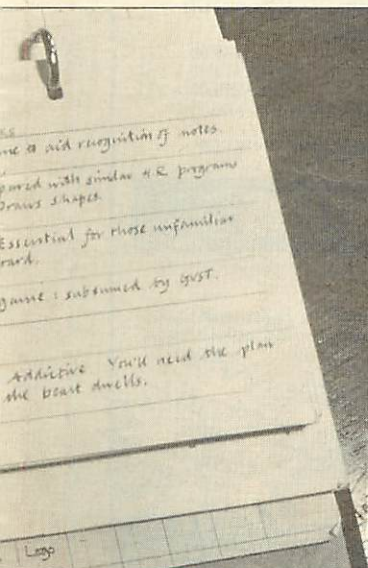 ES
me to aid recognition of notes.
pared with similar 4R programs
Draws shapes.
Essential for those unfamiliar
oard.
game : subsumed by GVST.
Addictive You'll need the plan
the beast dwells.
Logo